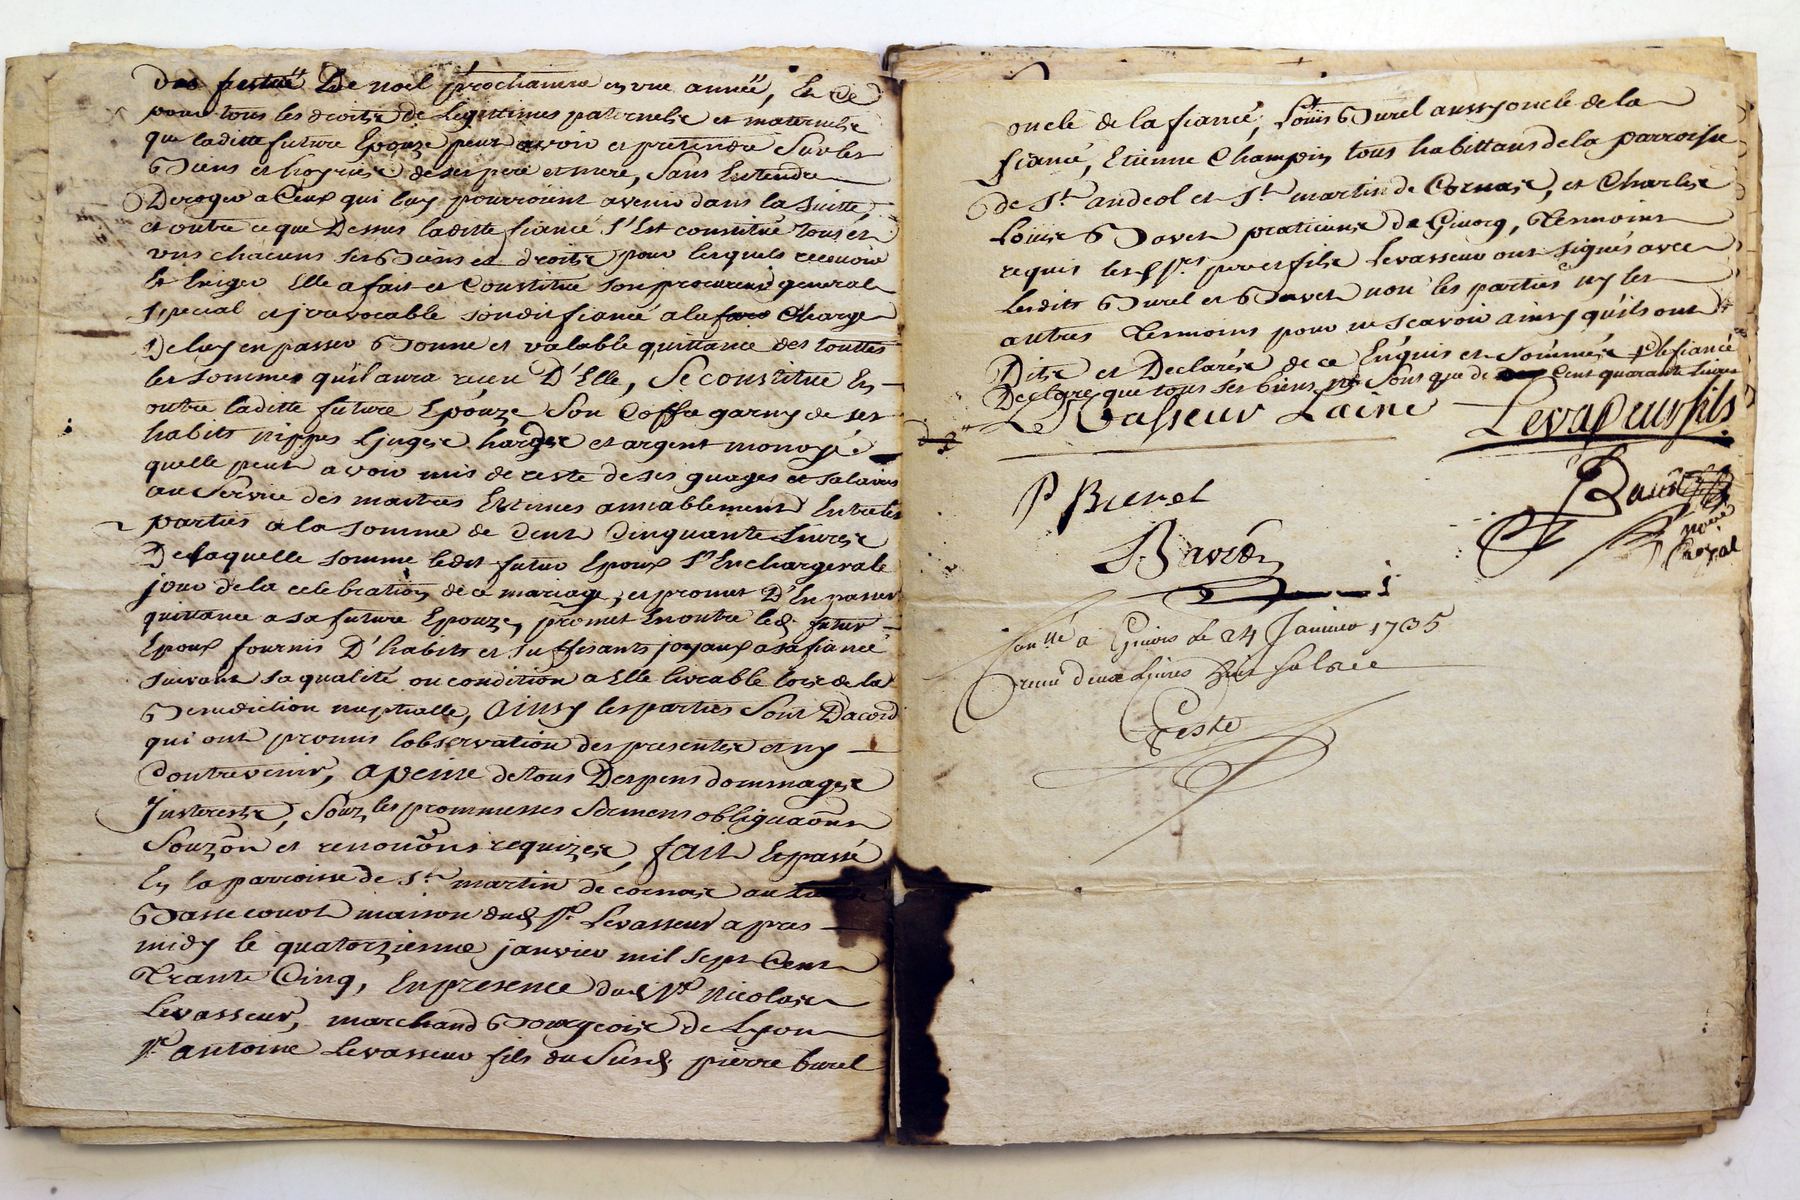 des festes De noel prochaine en une année, Et Ce
pour tous les droits de Legittimes paternelse et maternelse
que laditte future Epouze peut avoir et pretendre Sur les
Biens et hoyries de ses pere et mere, Sans Entendre
Deroger a Ceux qui luy pourroient avenir dans la Suitte,
et outre ce que Dessus laditte fiancé S'Est constitué tous et
uns chacuns ses Biens et droits pour lesquels recouvrir
Et Exiger Elle a fait et Constitué son procureur general
special et irrevocable sondit fiancé a la Charge
De luy en passer Bonne et valable quittance des touttes
les sommes qu'il aura receu D'Elle, Se constitue En
outre laditte future Epouze Son Coffre garny de ses
habits nippes Linges hardes et argent monoyé
quelle peut avoir mis de reste de ses guages et salaires
au Service des maitres Estimes amiablement Entre les
parties a la somme de Cent Cinquante Livres
De laquelle somme ledit futur Epoux S'En chargera le
jour de la celebration de ce mariage, et promet D'En passer
quittance a sa future Epouze, promet En outre led. futur
Epoux fournir D'habits et suffisants joyaux a sa fiancé
suivant sa qualité ou condition a Elle livrable lors de la
Benediction nuptialle, ainsy les parties Sont D'acord
qui ont promis lobservation des presentes et ny
Contrevenir, a peine de tous Despens dommages
Interests, Souz les prommesses Sermens obliguaons
Souzon et renonons requizes, fait Et passé
En la parroisse de St. martin de cornas au
Basse couot maison dud. Sr. Levasseur apres
midy le quatorzieme janvier mil sept Cent
Trante Cinq, En presence dud. Sr. Nicolas
Levasseur, marchand Bourgeois de Lyon
Sr. antoine Levasseur fils du Susd. pierre burel
oncle de la fiancé, Louis Burel aussy oncle de la
fiancé, Etienne Champin tous habittans de la parroisse
de St. andeol et St. martin de Cornas, et Charles
Louis Bavet praticiens de Givors, Temoins
requis lesd. Srs. pere et fils Levasseur ont signés avec
Lesdits Burel et Bavet non les parties ny les
autres Temoins pour ne scavoir ainsy qu'ils ont
Dits et Declarés de ce Enquis et Sommés
Declare que tous ses biens ne Sont que de Cent quarante Livres
Le Vasseur Laine Levasseur fils
P Burel
Bavet
nore
Royal
Conllé a Givors le 24 Janvier 1735
receu deux Livres huit sols
Geste